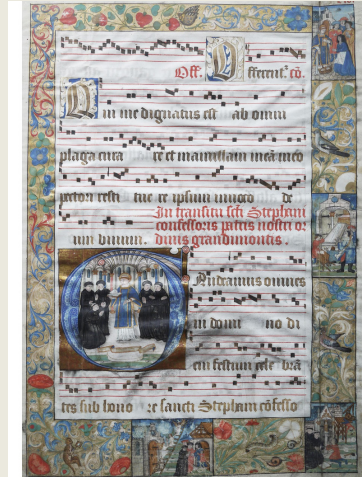 Off. Offerent.ꝰ cō.
Qui me dignatus est ab omni
plaga cura re et mamillam meā meo
pectori resti tue re ipsum invoco de
In transitu scti Stephani
confessoris patris nostri or
um vivum. dinis grandimontis.
Gaudeamus omnes
in domi no di
em festum cele brā
tes sub hono re sancti Stephani cōfesso